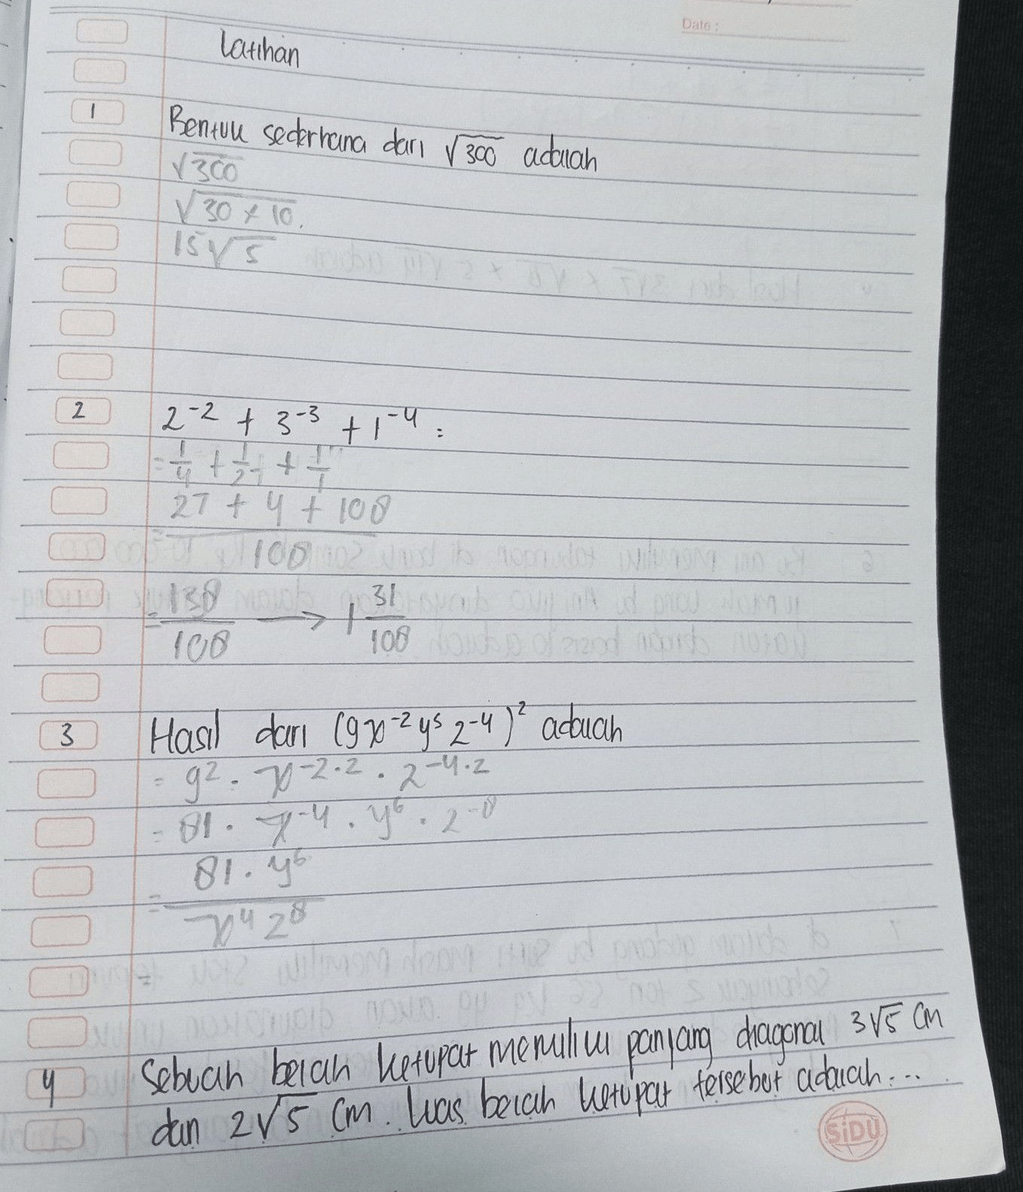 Date :
Latihan
1 Bentuk sederhana dari √300 adalah
√300
√30 × 10.
15√5
2 2⁻² + 3⁻³ + 1⁻⁴ =
= 1/4 + 1/27 + 1/1
= 27 + 4 + 108 / 108
= 139/108 → 1 31/108
3 Hasil dari (9x⁻²y⁵z⁻⁴)² adalah
= 9² · x⁻²·² · z⁻⁴·²
= 81 · x⁻⁴ · y⁶ · z⁻⁸
= 81 · y⁶ / x⁴ z⁸
4 Sebuah belah ketupat memiliki panjang diagonal 3√5 cm
dan 2√5 cm. Luas belah ketupat tersebut adalah...
SiDU